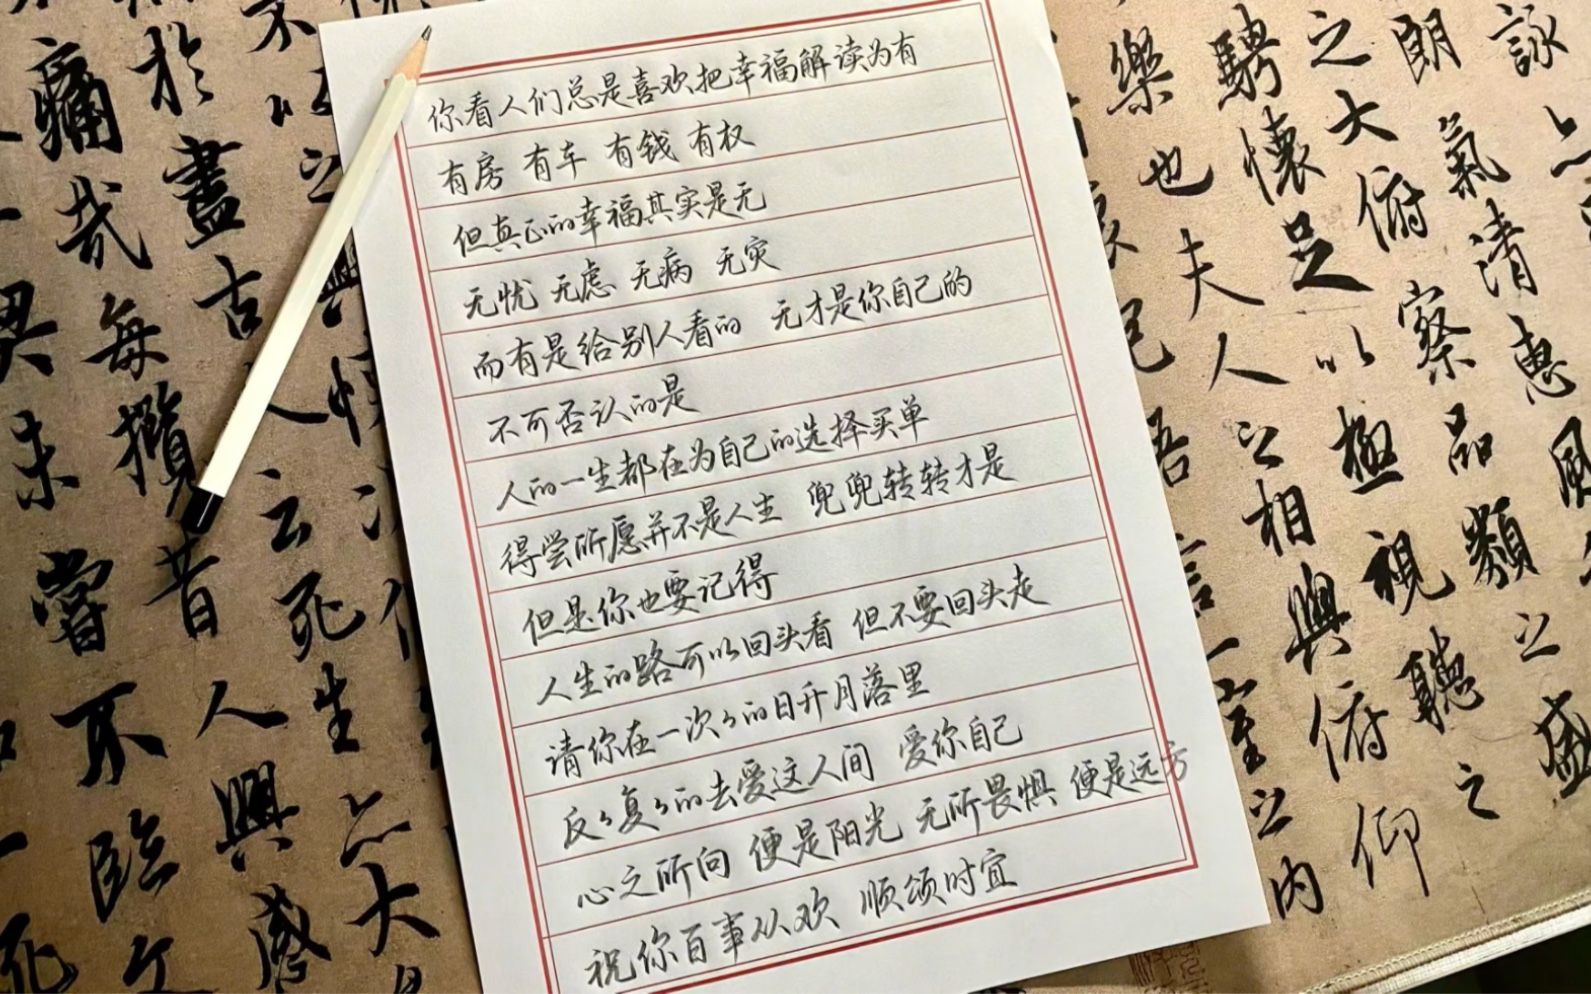 你看人们总是喜欢把幸福解读为有
有房 有车 有钱 有权
但真正的幸福其实是无
无忧 无虑 无病 无灾
而有是给别人看的 无才是你自己的
不可否认的是
人的一生都在为自己的选择买单
得尝所愿并不是人生 兜兜转转才是
但是你也要记得
人生的路可以回头看 但不要回头走
请你在一次々的日升月落里
反々复々的去爱这人间 爱你自己
心之所向 便是阳光 无所畏惧 便是远方
祝你百事从欢 顺颂时宜
詠
朗氣清惠風
之大俯察品類之盛
騁懷足以極視聽之
樂也夫人之相與俯仰
悟言一室之内
不以之興懷
於盡古人云死生亦大
痛哉每攬昔人興感
未嘗不臨文